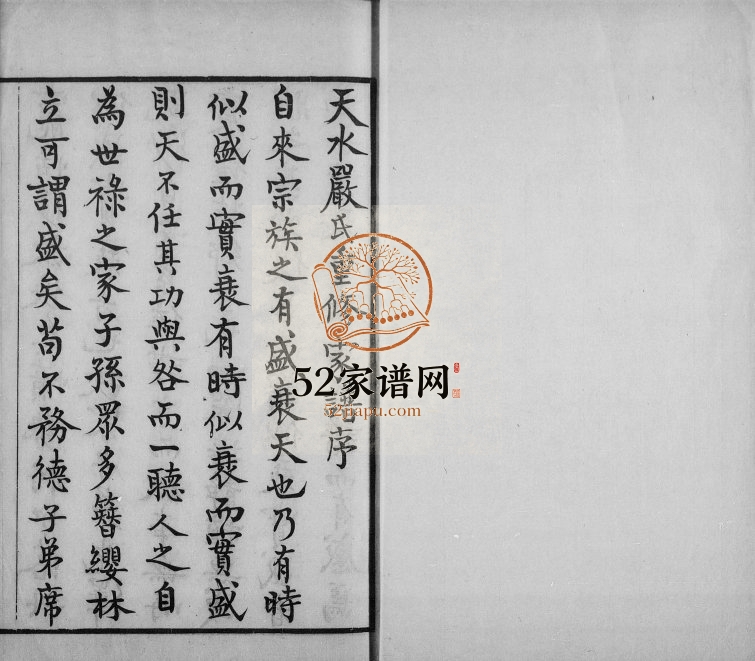 天水嚴氏重修家譜序
自來宗族之有盛衰天也乃有時
似盛而實衰有時似衰而實盛
則天不任其功與咎而一聽人之自
為世祿之家子孫眾多簪纓林
立可謂盛矣苟不務德子弟席
52家谱网
52japu.com